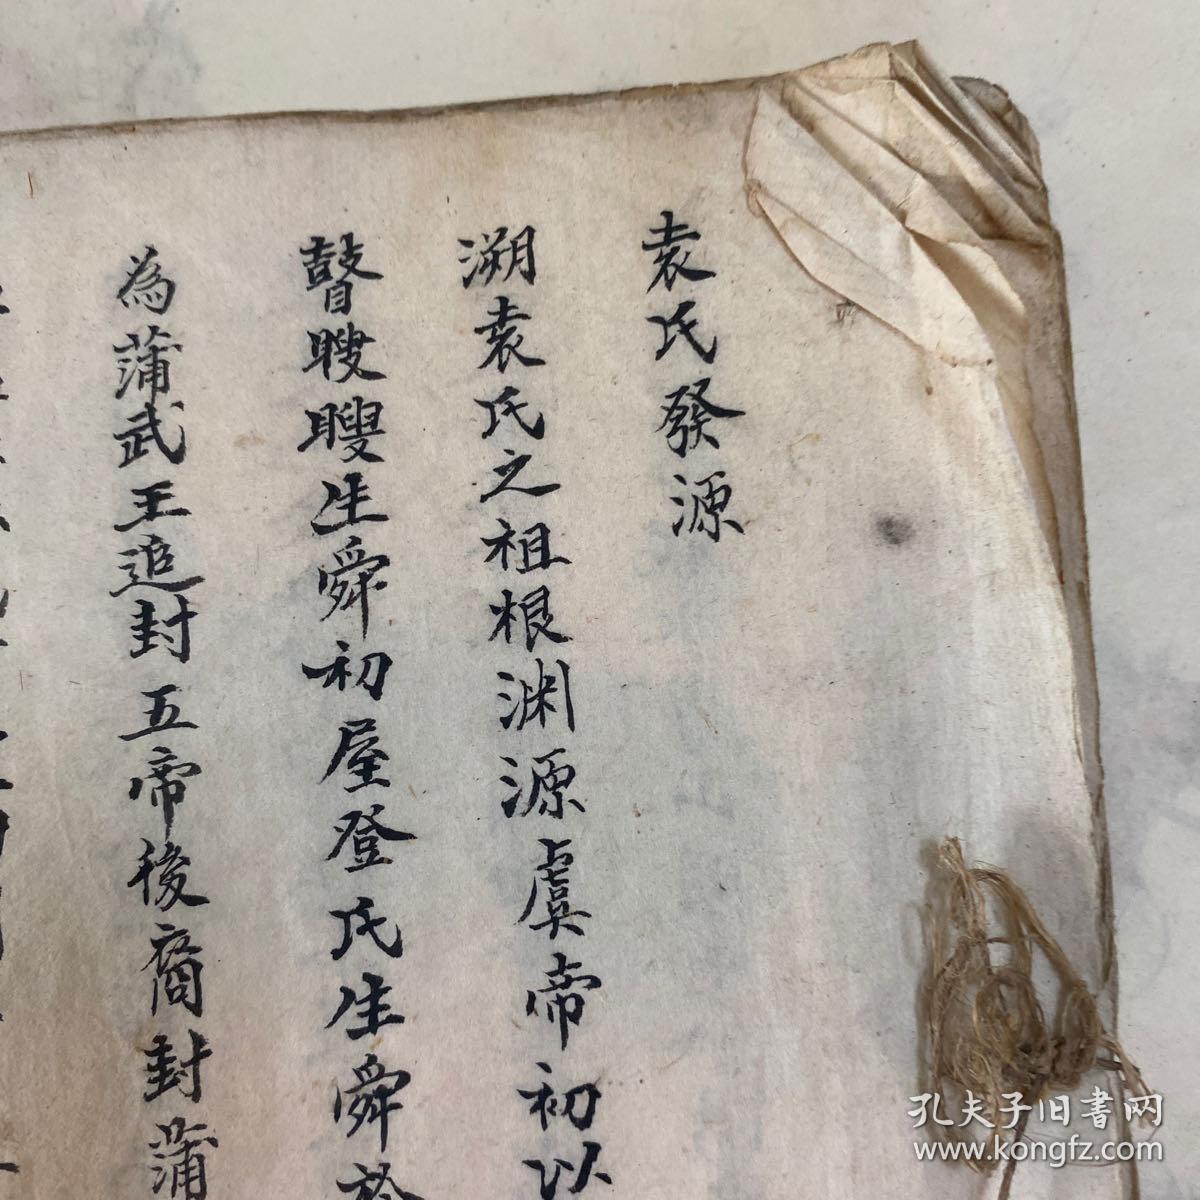 袁氏發源
溯袁氏之祖根渊源虞帝初以
瞽瞍瞍生舜初屋登氏生舜於
為蒲武王追封五帝後裔封蒲
孔夫子旧書网
www.kongfz.com